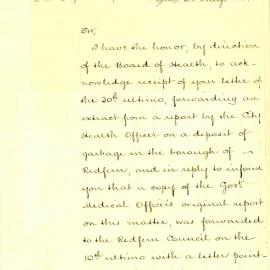 Sir,
I have the honor, by direction
of the Board of Health, to ack-
nowledge receipt of your letter of
the 20th ultimo, forwarding an
extract from a report by the City
Health Officer on a deposit of
garbage in the borough of
Redfern, and in reply to inform
you that a copy of the Govt
Medical Officer's original report
on this matter, was forwarded
to the Redfern Council on the
10th ultimo with a letter point-